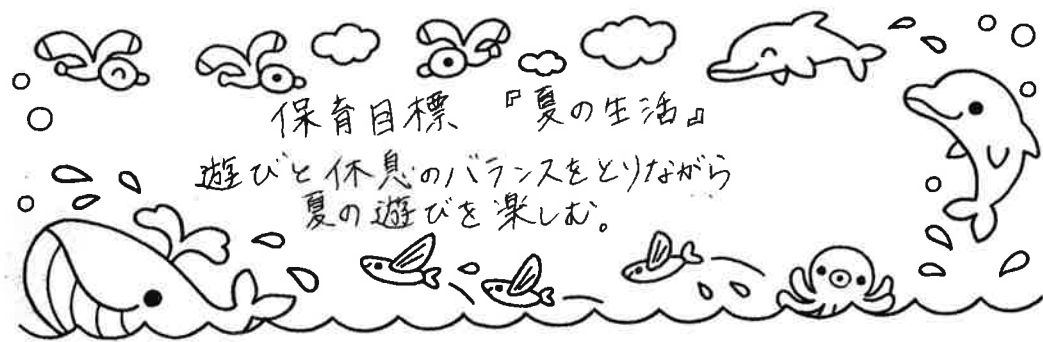 保育目標 『夏の生活』
遊びと休息のバランスをとりながら
夏の遊びを楽しむ。